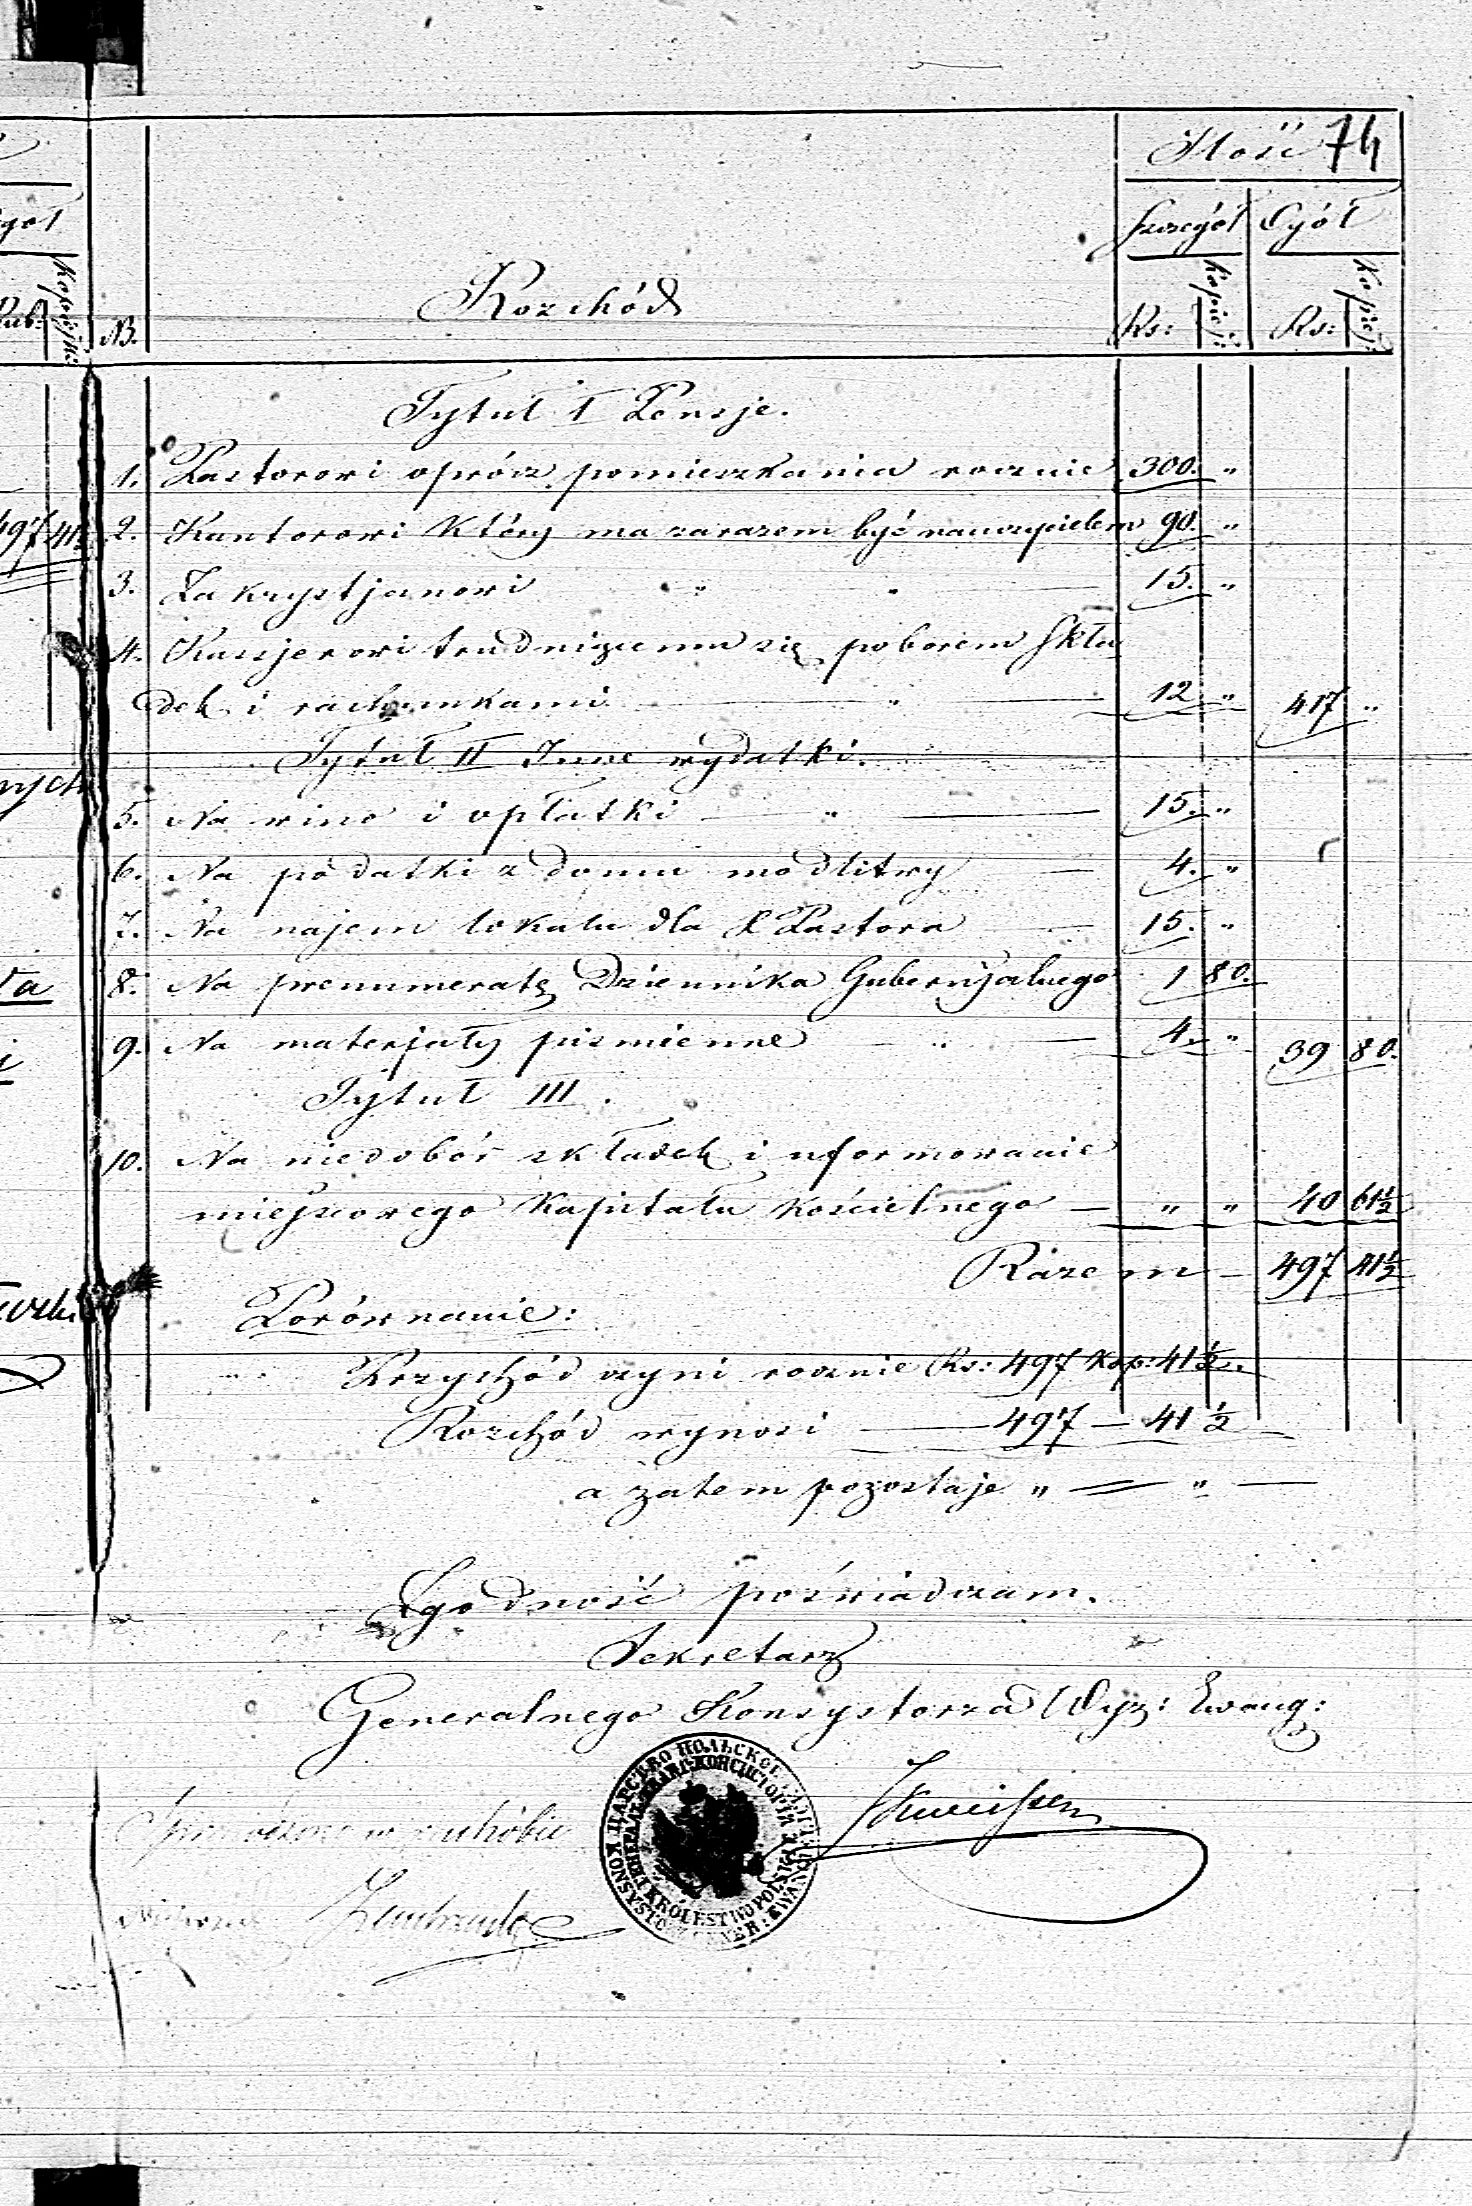 Ilość 74
Szczegół Ogół
Rozchód
№ Rs: Kopiej: Rs: Kopiej:
Tytuł I Pensje.
1. Pastorowi oprócz pomieszkania rocznie 300. "
497 41½ 2. Kantorowi który ma zarazem być nauczycielem 90. "
3. Zakrystjanowi " " 15. "
4. Kassjerowi trudniącemu się poborem skła
dek i rachunkami " 12 " 417 "
Tytuł II Inne wydatki.
5. Na wino i opłatki " 15. "
6. Na podatki z domu modlitwy 4. "
7. Na najem lokalu dla X Pastora 15. "
8. Na prenumeratę Dziennika Gubernjalnego 1 80.
9. Na materjały piśmienne " 4. " 39 80.
Tytuł III.
10. Na niedobór składek i uformowanie
miejscowego kapitału kościelnego " " 40 61½
Razem 497 41½
Porównanie:
Przychód czyni rocznie Rs: 497 Kop: 41½.
Rozchód wynosi 497 — 41½
a zatem pozostaje " = " —
Zgodność poświadczam.
Sekretarz
Generalnego Konsystorza Wyz: Ewang: